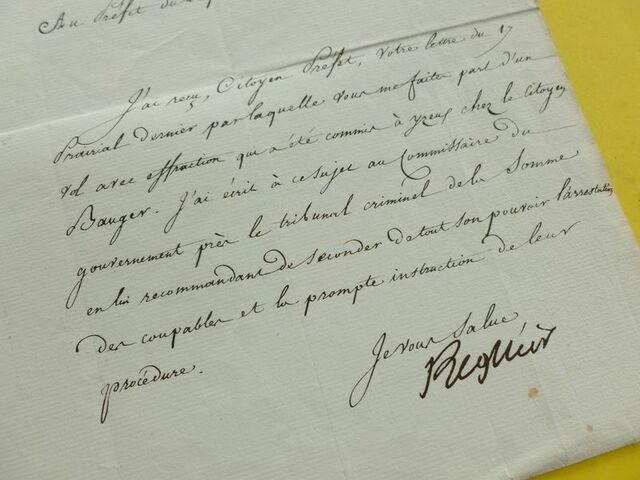 Au Préfet du
J'ai reçu, Citoyen Préfet, votre lettre du 17
Prairial dernier par laquelle vous me faites part d'un
vol avec effraction qui a été commis à yzeux chez le Citoyen
Bauger. J'ai écrit à ce sujet au Commissaire du
gouvernement près le tribunal criminel de la Somme
en lui recommandant de seconder de tout son pouvoir l'arrestation
des coupables et la prompte instruction de leur
procédure.
Je vous Salue
Regnier